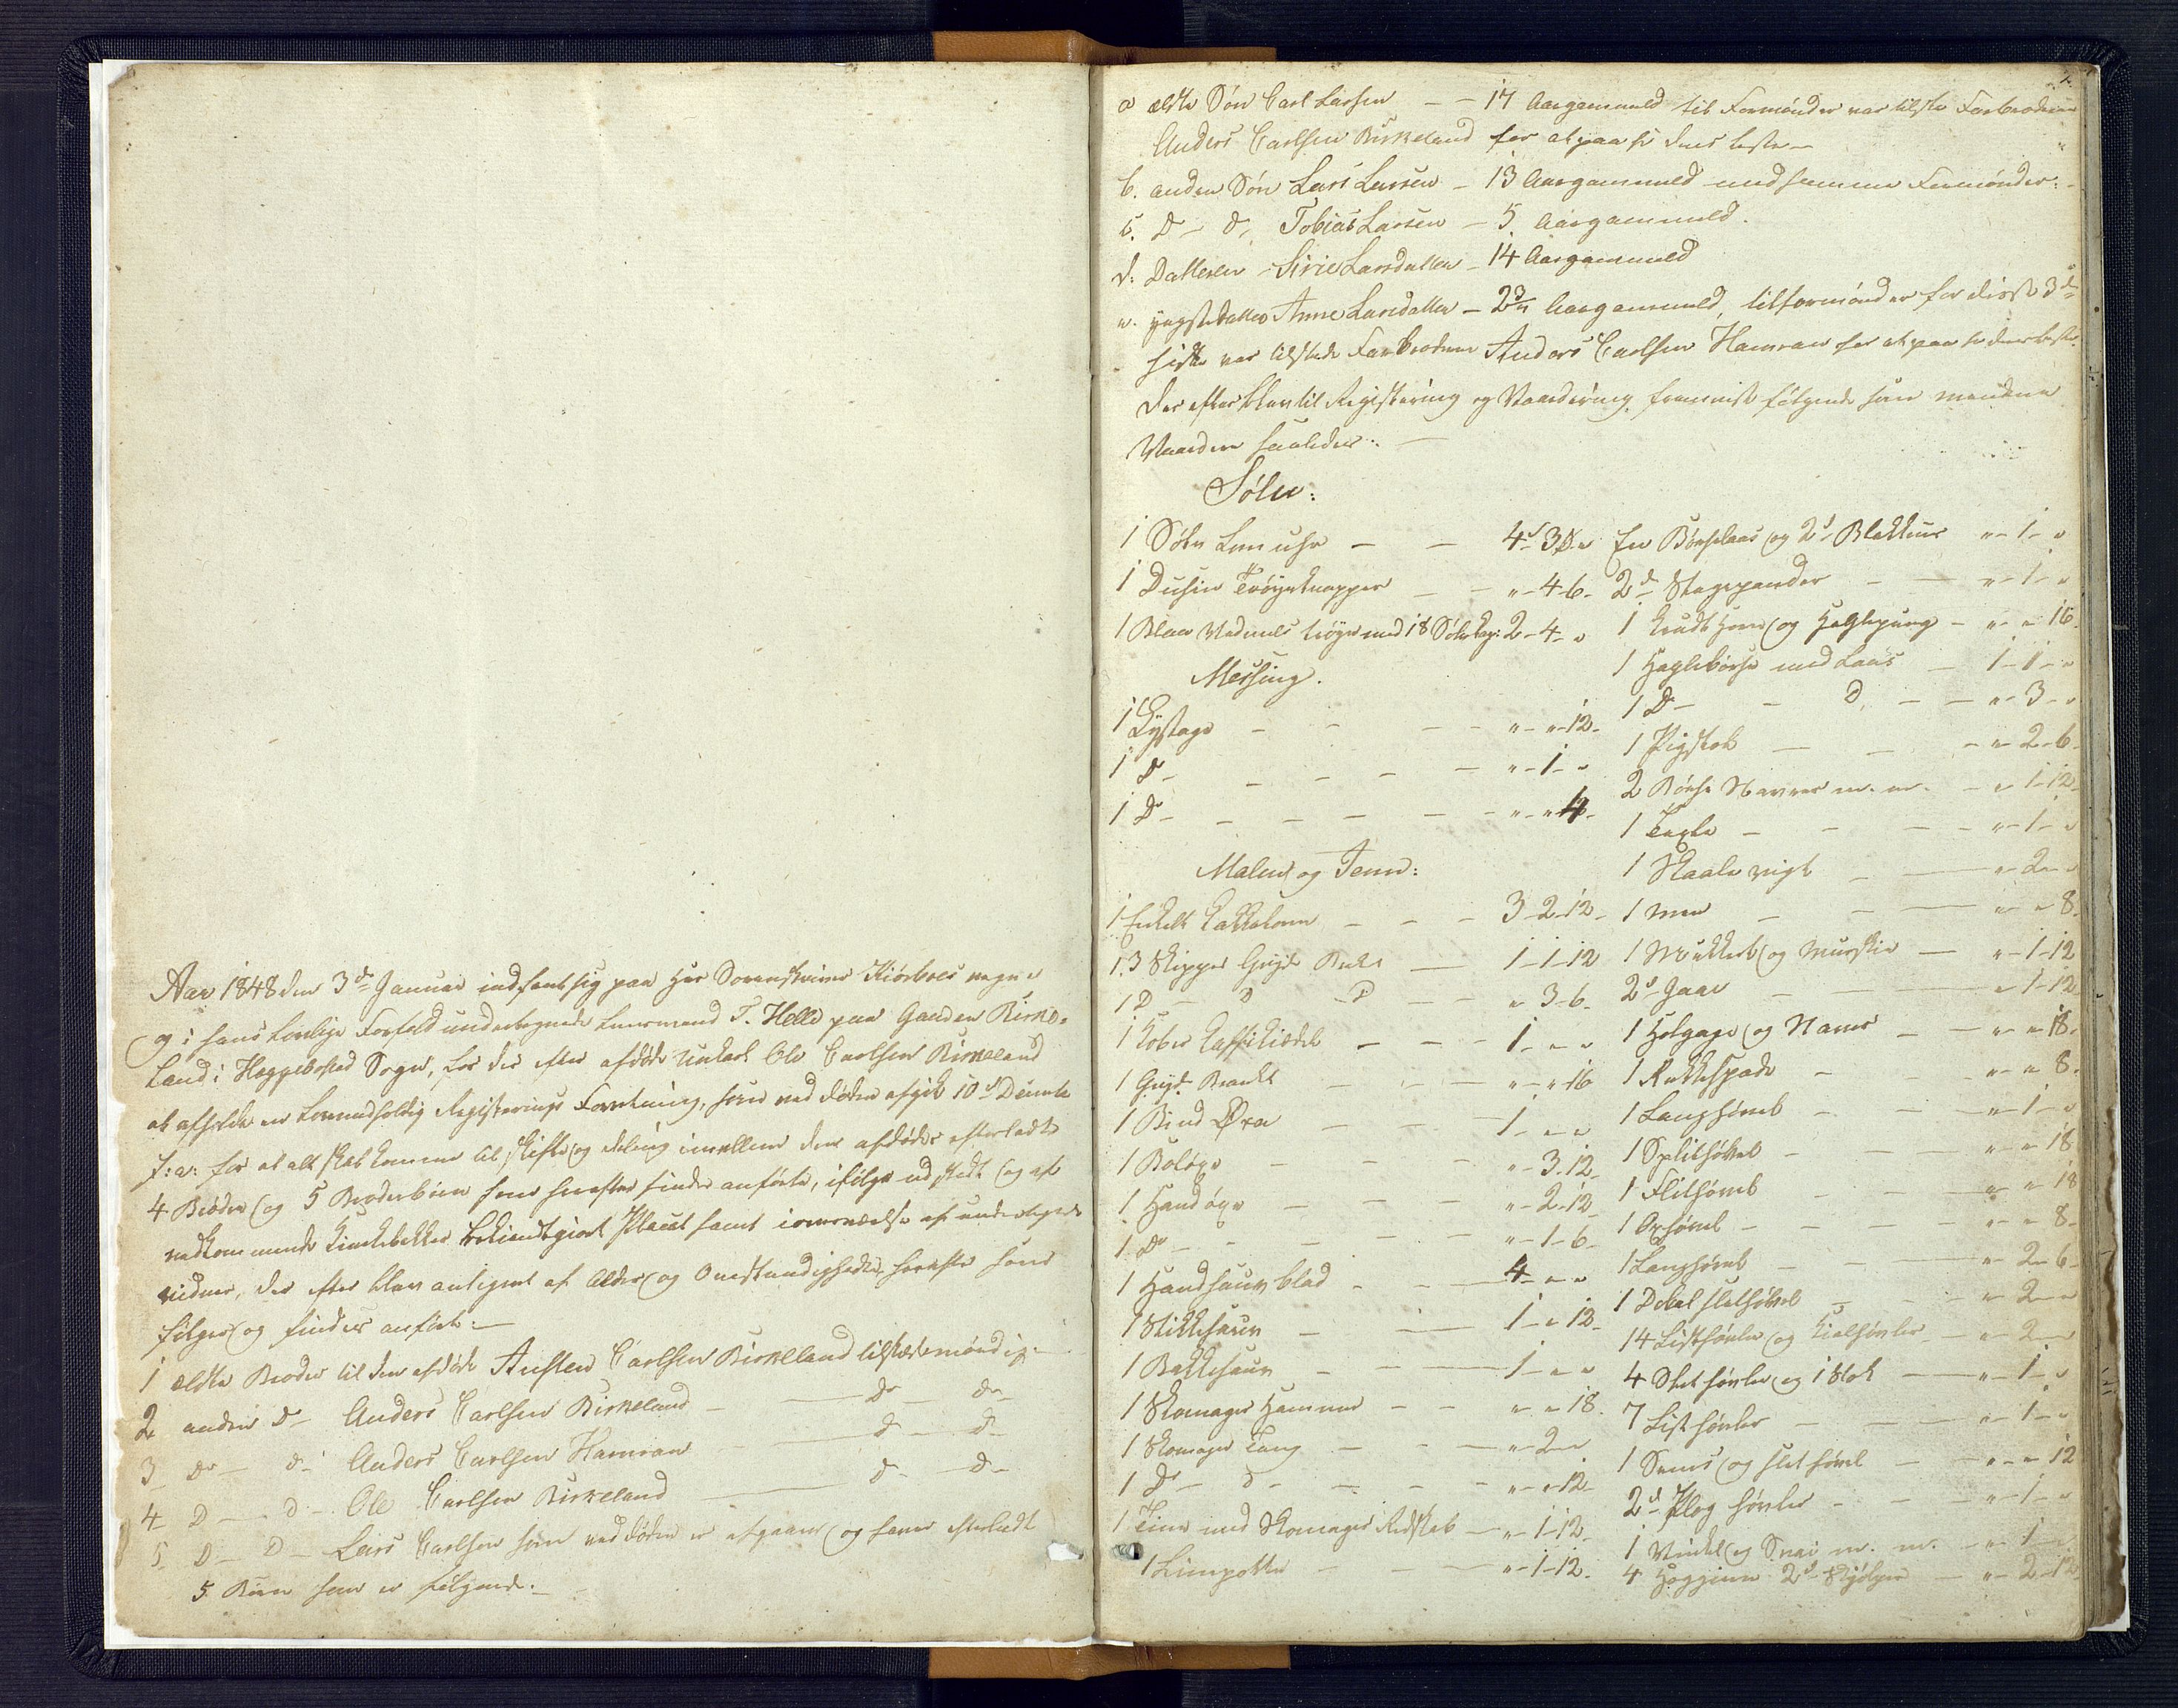 Aar 1848 den 3de Januar indfant sig paa Hr Sorenskriver Kiørboes vegne
og i hans Lovlige Forfald undertegnede Lensmand T. Helle paa Gaarden Birke-
land i Heggebosted Sogn, for der efter afdøde Unkarl Ole Carlsen Birkeland
at afholde en Lovmedholdig Registerings Forretning, som ved døden afgik 10de Decembr
f: a: for at alt skal komme til skifte og deling imellem den afdødes efterladte
4 Brødre og 5 Broderbørn som herefter findes anførte, ifølge udstædt og af
vedkommende bekiendtgiort Placat samt i overværelse af undertegnede
vidner, der efter blev antegnet af Alder og Omstændigheder, herefter som
følger og findes anført:
1 ældte Broder til den afdøde Austen Carlsen Birkeland tilstæde mÿndig
2 anden D- Anders Carlsen Birkeland — do do
3 Do — d- Anders Carlsen Hamran — d- d-
4 D — D- Ole Carlsen Birkeland — d- d-
5 D — D- Lars Carlsen som ved døden er afgaaen og haver efterladt
5 Børn som er følgende.
a ældte Søn Carl Larsen — 17 Aargammeld til Formÿnder var tilstæde Farbroderen
Anders Carlsen Birkeland for at paa se dens beste —
b. anden Søn Lars Larsen — 13 Aargammeld med samme Formÿnder.
c. D — d, Tobias Larsen — 5 Aargammeld.
d: Datteren Sirie Larsdatter — 14 Aargammeld
e. yngste datter Anne Larsdatter — 2 3/4 Aargammeld, til formÿnder for disse 3de
sidste var tilstede Farbroderen Anders Carlsen Hamran for at paa se deres beste.
Der efter blev til Registering og Vaardering fremvist følgende som mændene
Vaardere saaledes:
Sølv:
1 Sølv Lomuhr — 4 3 "
1 Dusin Trøyeknapper — " 4 6
1 Blaa Vadmels trøye med 18 Sølvknap: 2 - 4 - "
Messing.
1 Lystage — " " 12
1 D- — " 1 "
1 D- — " "
Malm og Jern:
1 Enkelt Kakkelovn — 3 - 2 - 12
1 3 Skipper Gryde — 1 - 1 - 12
1 D — D — D — " 3 - 6
1 Kober Caffekiedel — 1 - " "
1 Gryde — " " 16
1 Bind Øxe — 1 - " "
1 Boløxe — " 3 - 12
1 Haandøxe — " 2 - 12
1 Do — " 1 - 6
1 Haandsaug blad — 4 - " "
1 Stikkesaug — 1 " 12
1 Bakkesaug — 1 - " "
1 Skomager Hammer — " " 18
1 Skomager Tang — " 2 "
1 D- D- — " " 12
1 Tine med Skomager Redskab — " 1 - 12
1 Limpotte — " 1 - 12
En Børselaas og 2d Blakkier " 1 - "
2d Stegepander — " 1 - "
1 Krudt Horn og Haglepung — " " 16
1 Haglebørse med Laas — 1 - 1 - "
1 D- — D, — " 3 - "
1 Pigstok — " 2 - 6
2 Børse Navrer m. m. — " 1 - 12
1 — " 1 - "
1 Skaalevegt — " 2 "
1 — " " 8
1 Mukkert og Murskie — " 1 - 12
2d Jaar — " 1 - 12
1 Holgage og Naver — " " 18
1 Rakkespade — " " 8
1 Langhøvel — " 1 - "
1 Splithøvel — " " 18
1 Slethøvel — " " 18
1 Oxhøvel — " " 8
1 Langhøvel — " 2 - 6
1 Dobel slethøvel — " 2 "
14 Listhøvler og Kielhøvler — " 2 "
4 Slethøvler og 1 Stok — " 1 - "
7 Listhøvler — " 1 - "
1 og slethøvel — " " 12
2d Plog høvler — " 1 - "
1 Vinkel og m. m. — " 1 - "
4 Hoggiern 2d — " 2 - 12